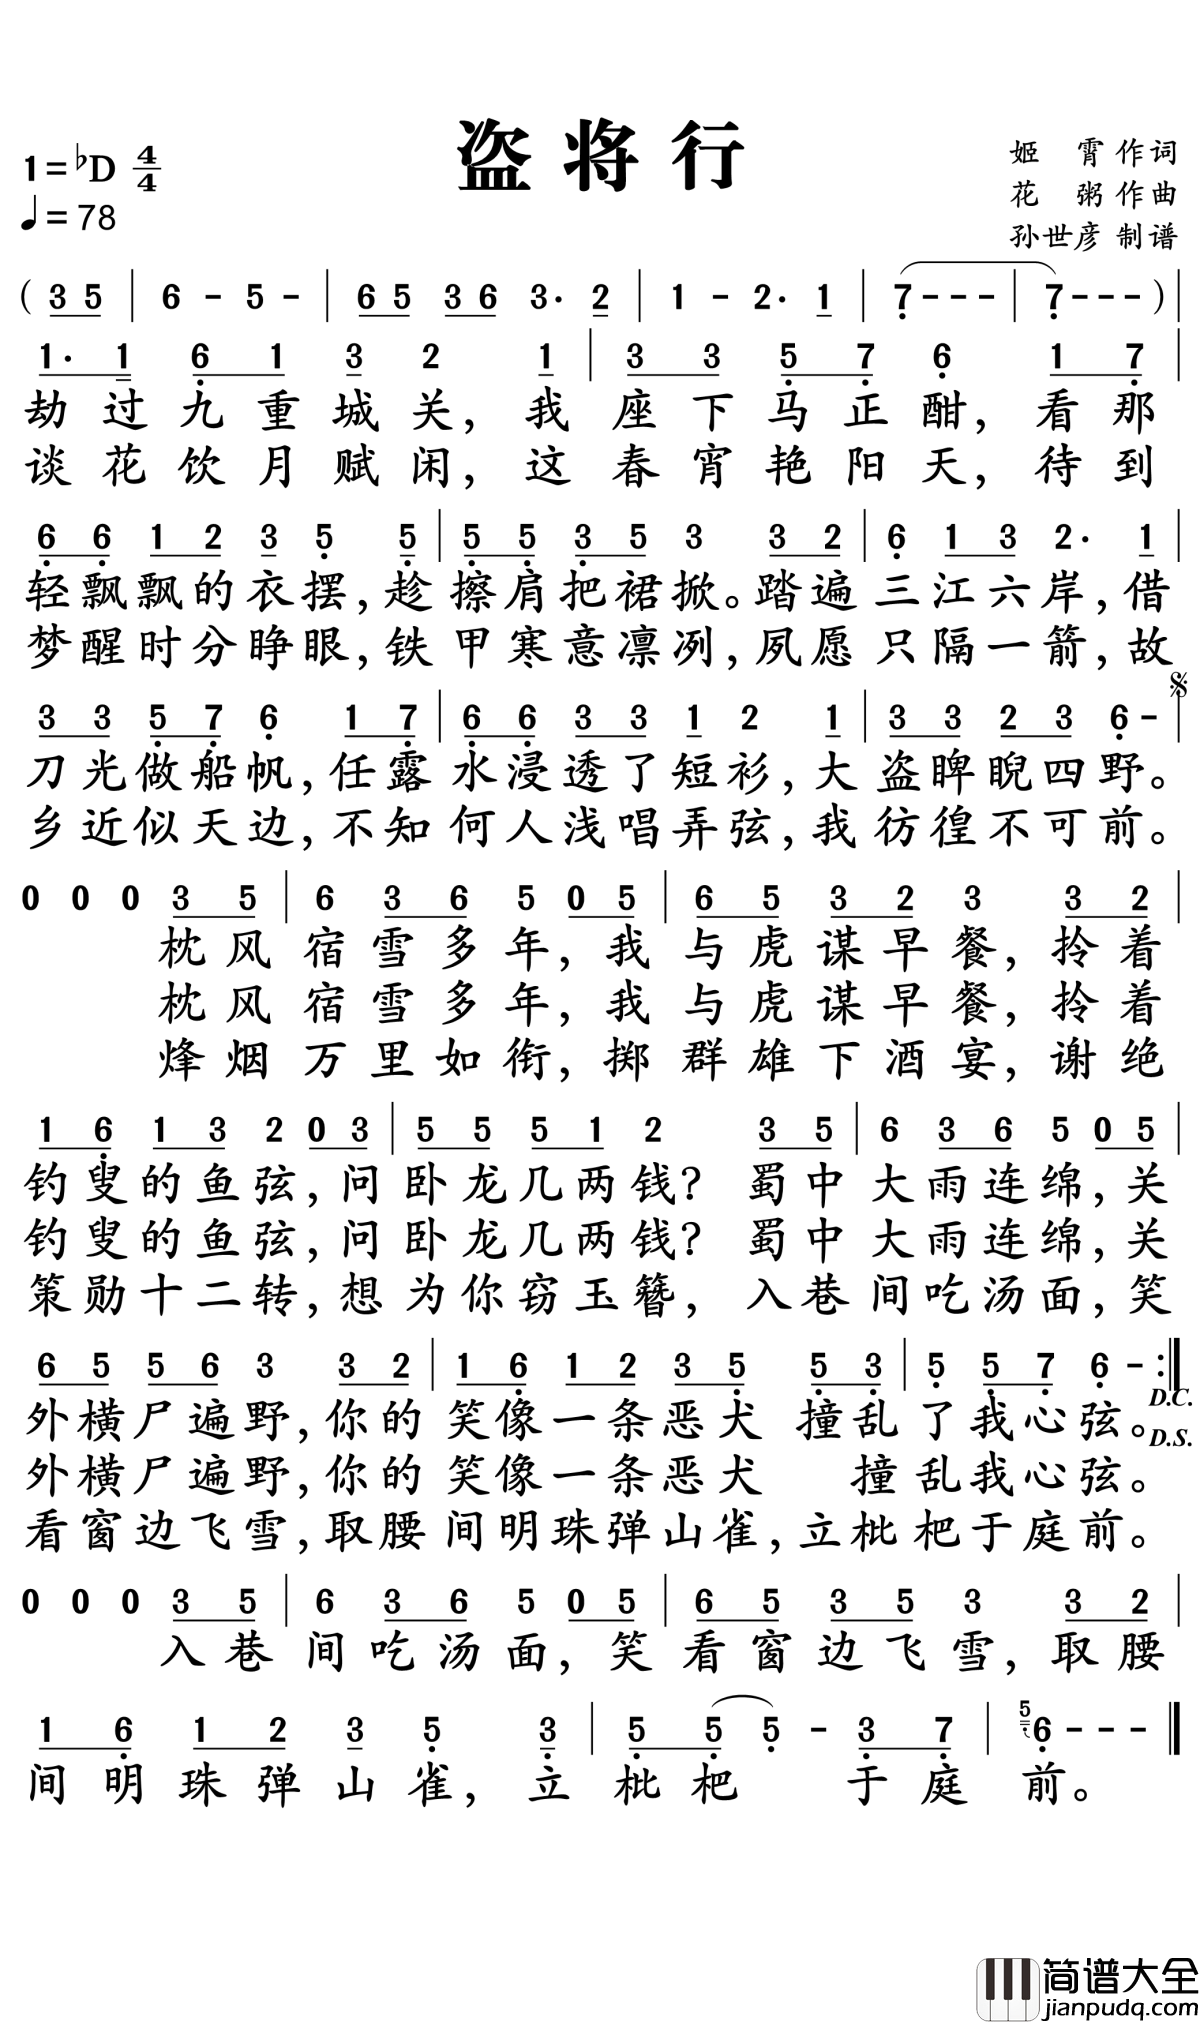 盗将行
1=♭D 4/4
♩=78
姬 霄 作词
花 粥 作曲
孙世彦 制谱
( 3 5 | 6 - 5 - | 6 5 3 6 3· 2 | 1 - 2· 1 | 7 - - - | 7 - - - ) |
1· 1 6 1 3 2 1 | 3 3 5 7 6 1 7 |
劫过九重城关，我座下马正酣，看那
谈花饮月赋闲，这春宵艳阳天，待到
6 6 1 2 3 5 5 | 5 5 3 5 3 3 2 | 6 1 3 2· 1 |
轻飘飘的衣摆，趁擦肩把裙掀。踏遍三江六岸，借
梦醒时分睁眼，铁甲寒意凛冽，夙愿只隔一箭，故
3 3 5 7 6 1 7 | 6 6 3 3 1 2 1 | 3 3 2 3 6 - |
刀光做船帆，任露水浸透了短衫，大盗睥睨四野。
乡近似天边，不知何人浅唱弄弦，我彷徨不可前。
0 0 0 3 5 | 6 3 6 5 0 5 | 6 5 3 2 3 3 2 |
枕风宿雪多年，我与虎谋早餐，拎着
枕风宿雪多年，我与虎谋早餐，拎着
烽烟万里如衔，掷群雄下酒宴，谢绝
1 6 1 3 2 0 3 | 5 5 5 1 2 3 5 | 6 3 6 5 0 5 |
钓叟的鱼弦，问卧龙几两钱？蜀中大雨连绵，关
钓叟的鱼弦，问卧龙几两钱？蜀中大雨连绵，关
策勋十二转，想为你窃玉簪，入巷间吃汤面，笑
6 5 5 6 3 3 2 | 1 6 1 2 3 5 5 3 | 5 5 7 6 - :|
外横尸遍野，你的笑像一条恶犬 撞乱了我心弦。D.C.
外横尸遍野，你的笑像一条恶犬 撞乱我心弦。D.S.
看窗边飞雪，取腰间明珠弹山雀，立枇杷于庭前。
0 0 0 3 5 | 6 3 6 5 0 5 | 6 5 3 5 3 3 2 |
入巷间吃汤面，笑看窗边飞雪，取腰
1 6 1 2 3 5 3 | 5 5 5 - 3 7 | 5 6 - - - |
间明珠弹山雀，立枇杷 于庭前。
简谱大全
jianpudq.com